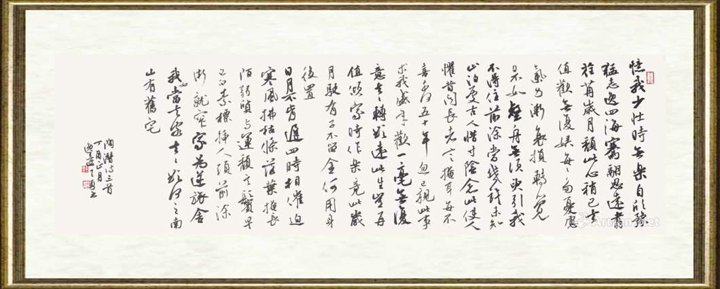 憶我少壯時無樂自欣豫
猛志逸四海騫翮思遠翥
荏苒歲月頹此心稍已去
值歡無復娛每每多憂慮
氣力漸衰損轉覺
日不如壑舟無須臾引我
不得住前涂當幾許未知
止泊處古人惜寸陰念此使人
懼昔聞長老言掩耳每不
喜奈何五十年忽已親此事
求我盛年歡一毫無復
意去去轉欲遠此生豈再
值傾家時作樂竟此歲
月駛有子不留金何用身
後置
日月不肯遲四時相催迫
寒風拂枯條落葉掩長
陌弱質與運頹玄鬢早
已白素標插人頭前涂
漸就窄家為逆旅舍
我如當去客去去欲何之南
山有舊宅
陶潛詩三首
丁酉正月